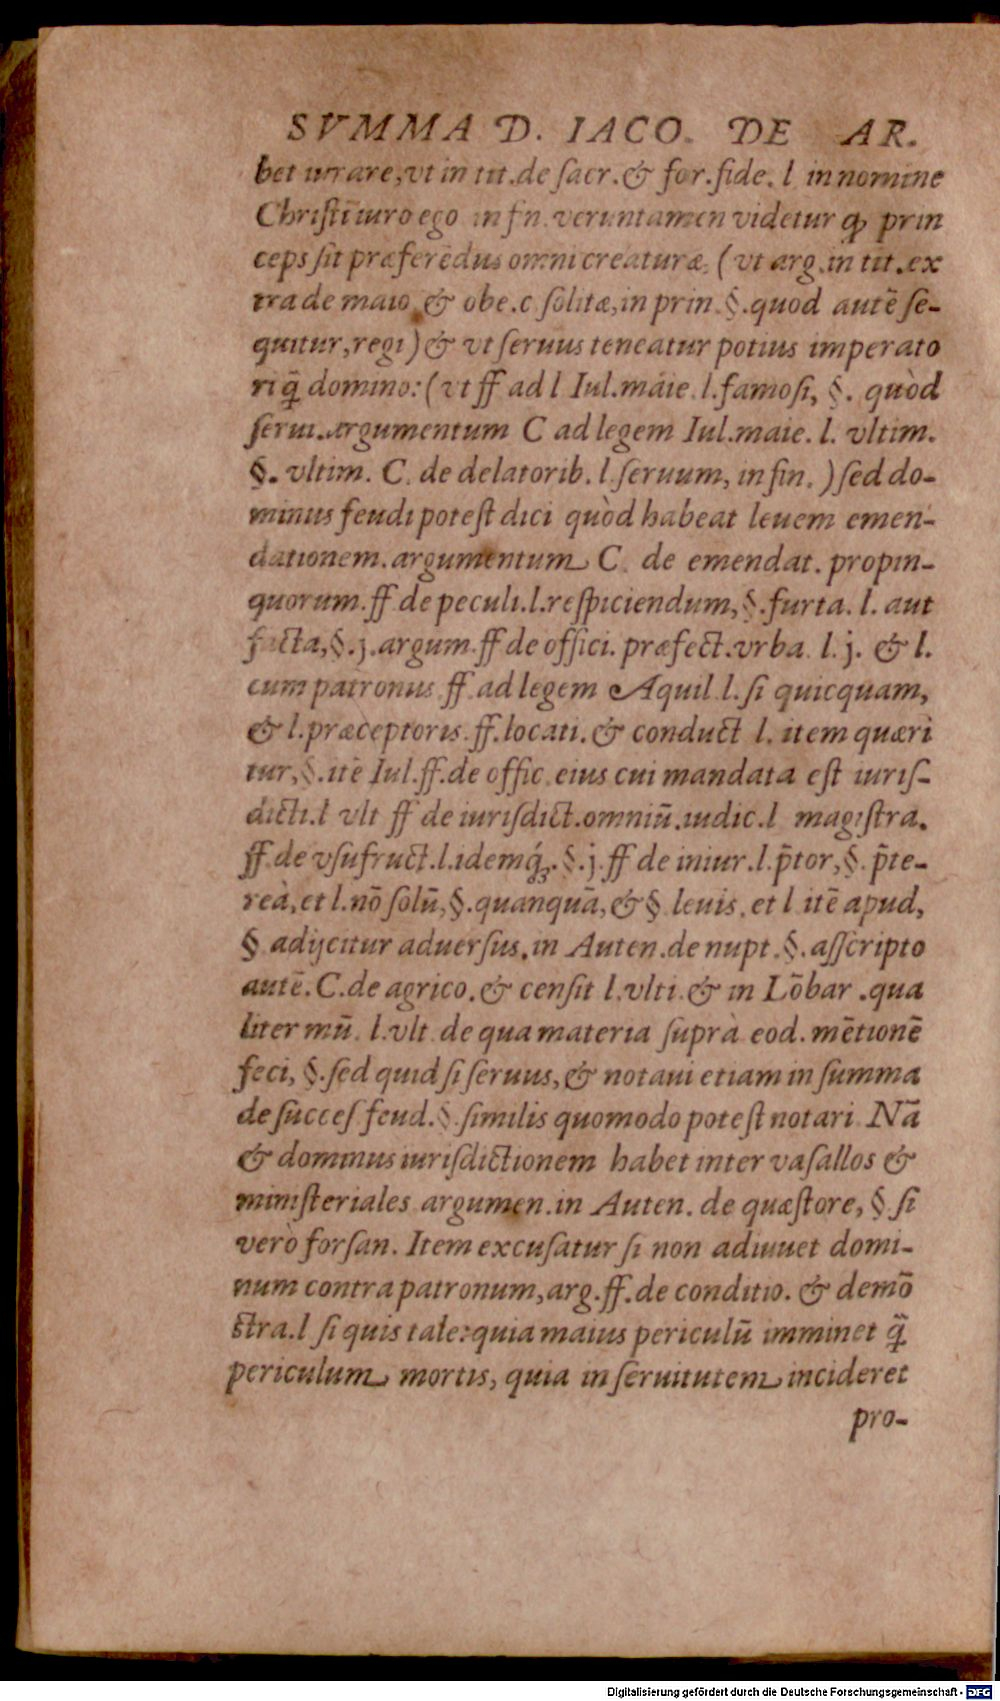 SVMMA D. IACO. DE AR.
bet iurare, vt in tit. de sacr. & for. fide. l in nomine
Christi iuro ego in fin. veruntamen videtur ꝙ prin
ceps sit præferẽdus omni creaturæ, (vt arg. in tit. ex
tra de maio & obe. c solitæ, in prin. §. quod autẽ se-
quitur, regi) & vt seruus teneatur potius imperato
ri q̃ domino: (vt ff ad l Iul. maie. l. famosi, §. quòd
serui. argumentum C ad legem Iul. maie. l. vltim.
§. vltim. C. de delatorib. l. seruum, in fin. ) sed do-
minus feudi potest dici quòd habeat leuem emen-
dationem. argumentum C. de emendat. propin-
quorum. ff. de peculi. l. respiciendum, §. furta. l. aut
facta, §. j. argum. ff de offici. præfect. vrba. l. j. & l.
cum patronus ff. ad legem Aquil l. si quicquam,
& l. præceptoris. ff. locati. & conduct l. item quæri
tur, §. itẽ Iul. ff. de offic eius cui mandata est iuris-
dicti. l vlt ff de iurisdict. omniũ. iudic. l magistra.
ff. de vsufruct. l. idemq́ꝫ. §. j. ff de iniur. l. p̃tor, §. p̃te-
reà, et l. nõ solũ, §. quanquã, & § leuis. et l itẽ apud,
§ adijcitur aduersus. in Auten. de nupt. §. asscripto
autẽ. C. de agrico. & censit l. vlti. & in Lõbar. qua
liter mũ. l. vlt de qua materia suprà eod. mẽtionẽ
feci, §. sed quid si seruus, & notaui etiam in summa
de succes feud. §. similis quomodo potest notari Nã
& dominus iurisdictionem habet inter vasallos &
ministeriales argumen. in Auten. de quæstore, § si
verò forsan. Item excusatur si non adiuuet domi-
num contra patronum, arg. ff. de conditio. & demõ
stra. l si quis tale: quia maius periculũ imminet q̃
periculum mortis, quia in seruitutem incideret
pro-
Digitalisierung gefördert durch die Deutsche Forschungsgemeinschaft - DFG